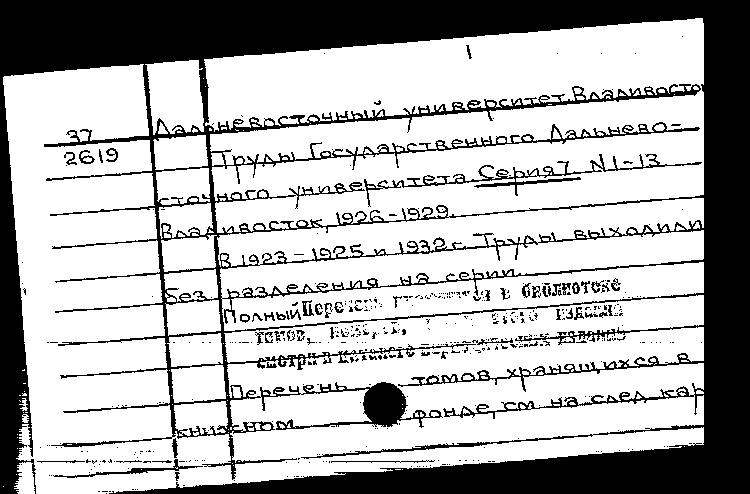 37
2619
Дальневосточный университет. Владивосток
Труды Государственного Дальнево-
сточного университета Серия 7 N 1-13
Владивосток, 1926-1929.
В 1923-1925 и 1932 г. Труды выходили
без разделения на серии.
Полный Перечень в библиотеке
томов, этого издания
смотри в каталоге периодических изданий
Перечень томов, хранящихся в
книжном фонде, см на след кар